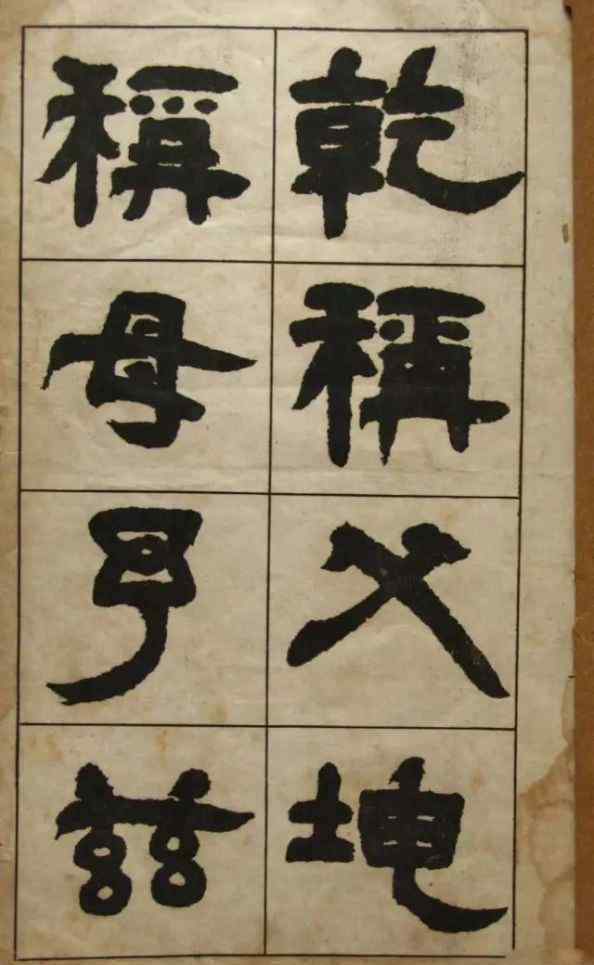 乾稱父坤
稱母予茲